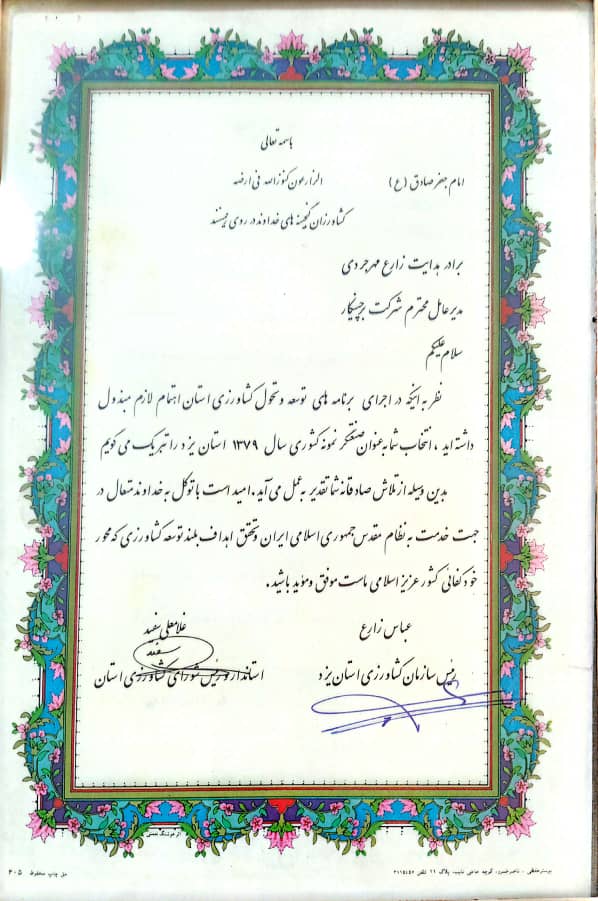 باسمه تعالی
امام جعفر صادق (ع) الزارعون کنوز الله فی ارضه
کشاورزان گنجینه های خداوند در روی زمینند
برادر هدایت زارع مهرجردی
مدیر عامل محترم شرکت برچینکار
سلام علیکم
نظر به اینکه در اجرای برنامه های توسعه و تحول کشاورزی استان اهتمام لازم مبذول
داشته اید، انتخاب شما به عنوان صنعتگر نمونه کشوری سال ۱۳۷۹ استان یزد را تبریک می گویم
بدین وسیله از تلاش صادقانه شما تقدیر به عمل می آید. امید است با توکل به خداوند متعال در
جهت خدمت به نظام مقدس جمهوری اسلامی ایران و تحقق اهداف بلند توسعه کشاورزی که محور
خودکفائی کشور عزیز اسلامی ماست موفق و مؤید باشید.
عباس زارع غلامعلی سفید
رئیس سازمان کشاورزی استان یزد استاندار و رئیس شورای کشاورزی استان
حق چاپ محفوظ ۴۰۵